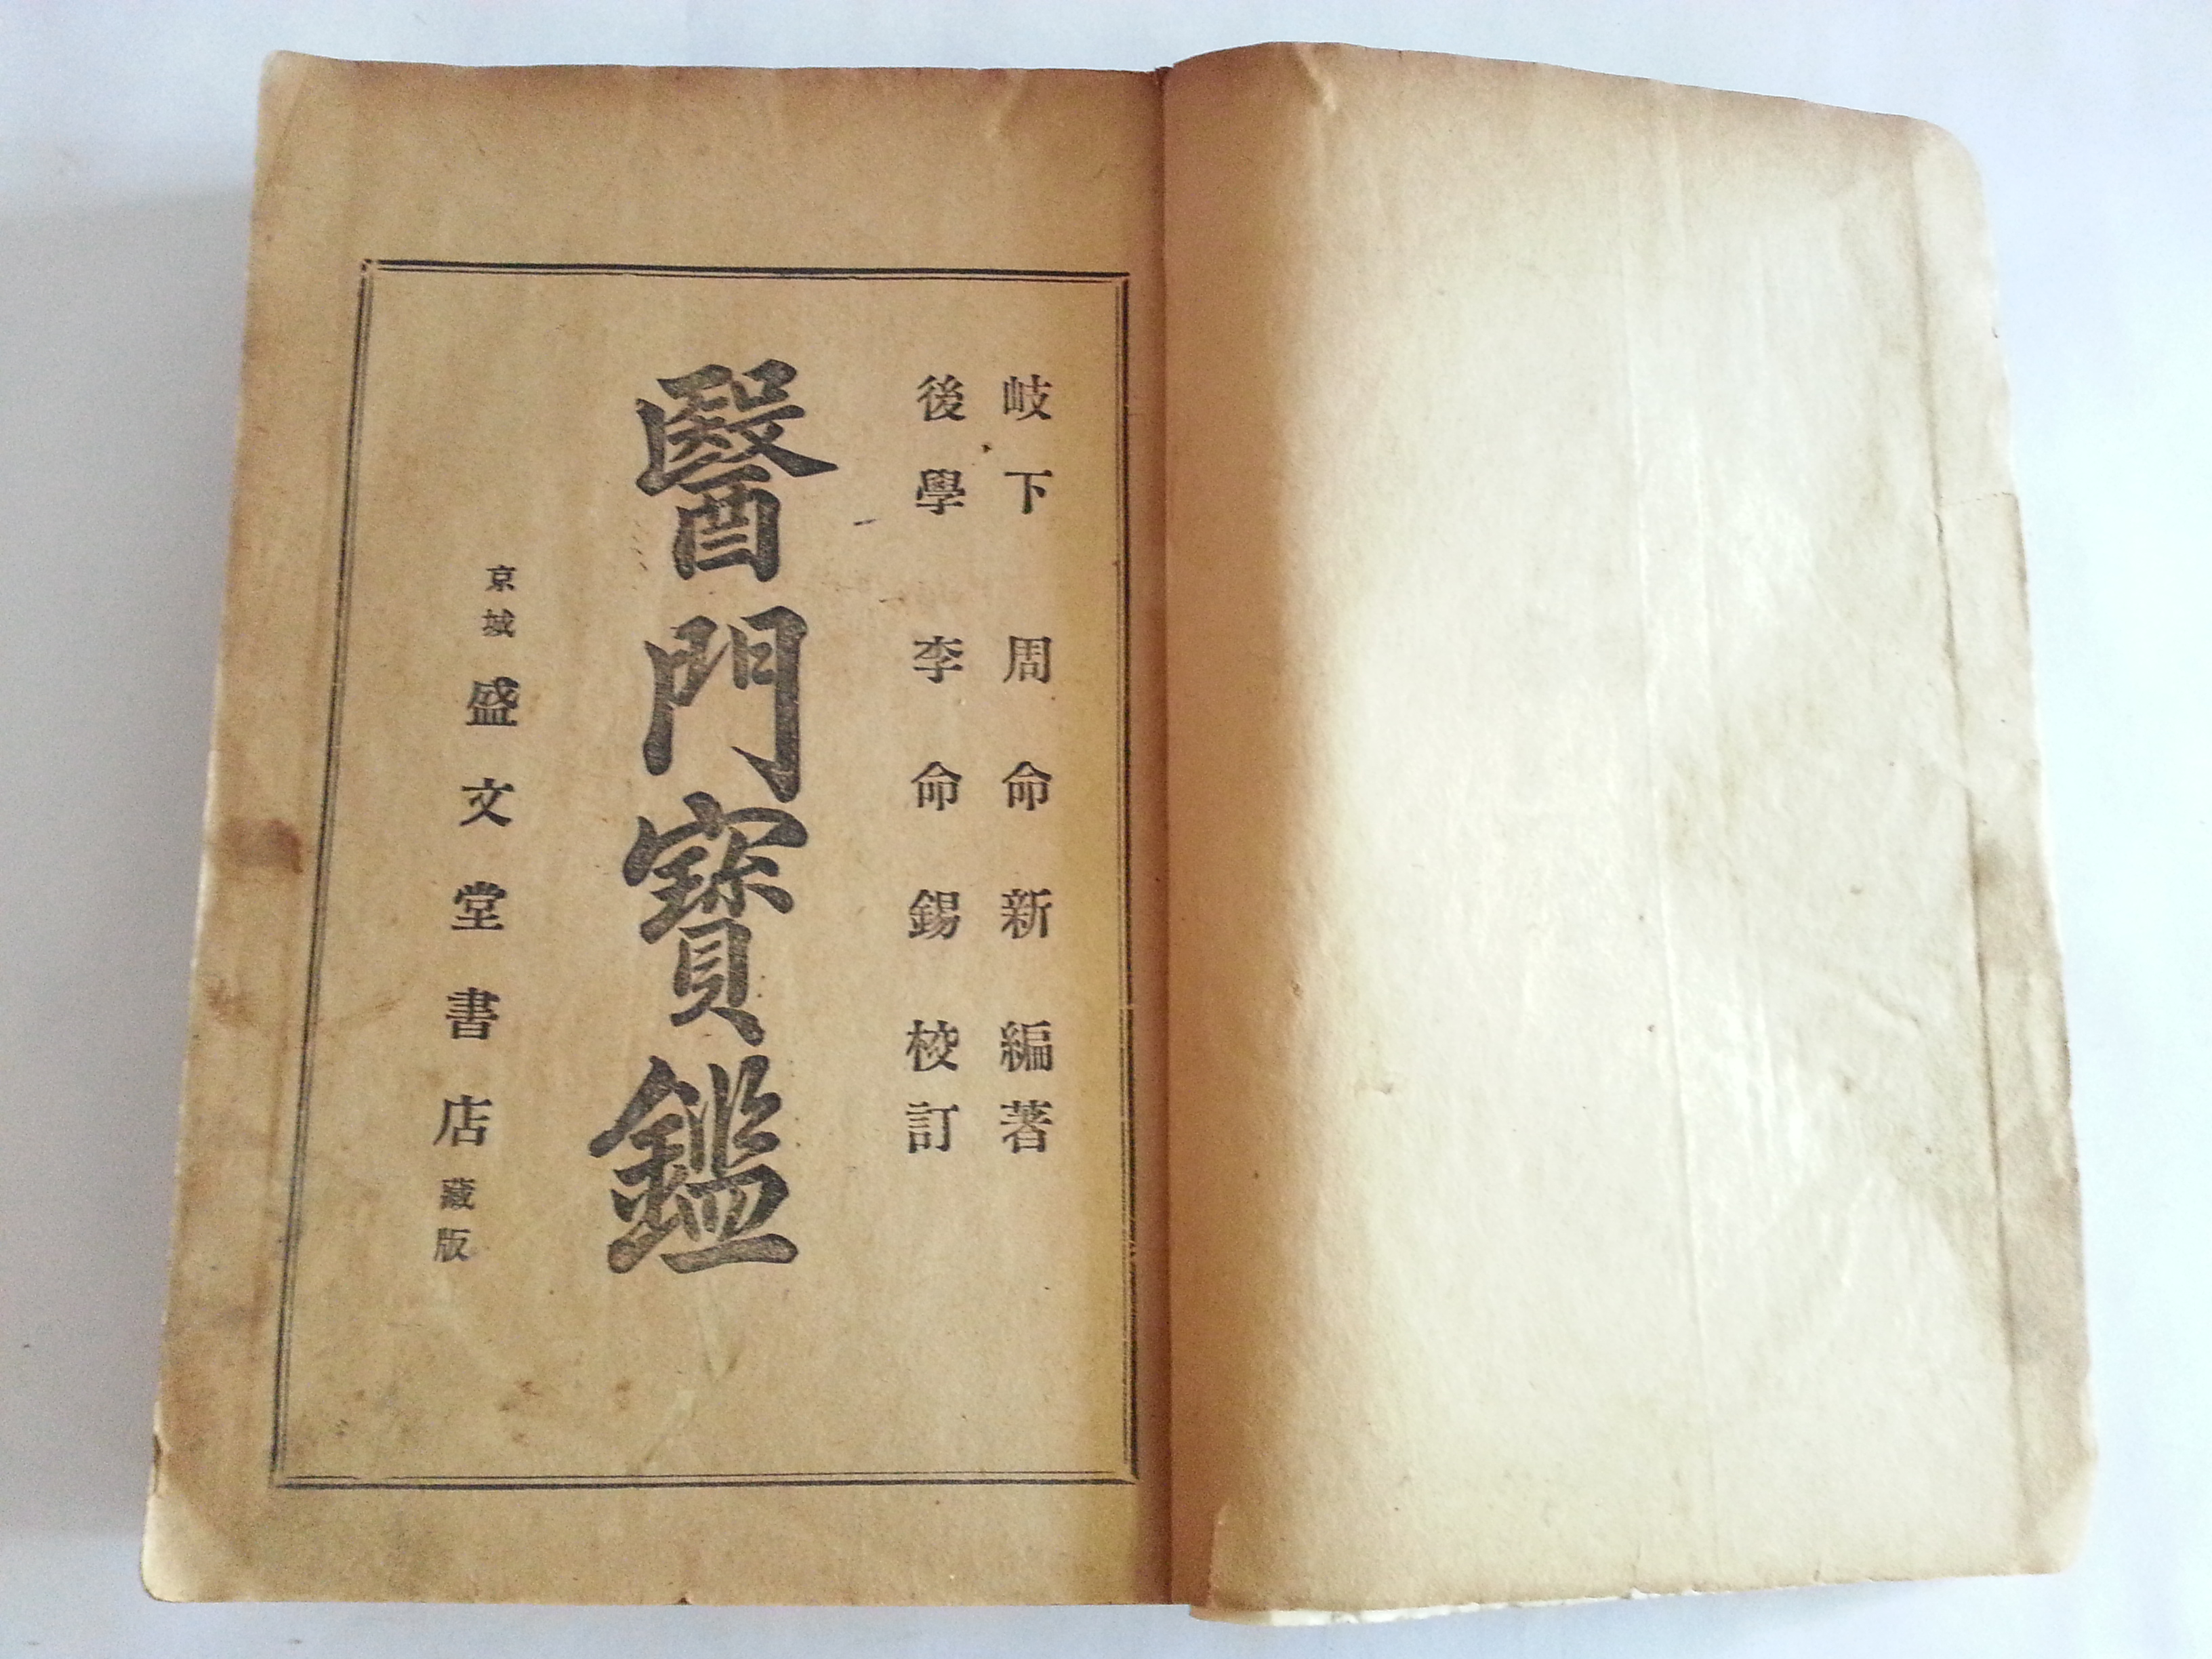 岐下 周命新編著
後學 李命錫校訂
醫門寶鑑
京城 盛文堂書店藏版